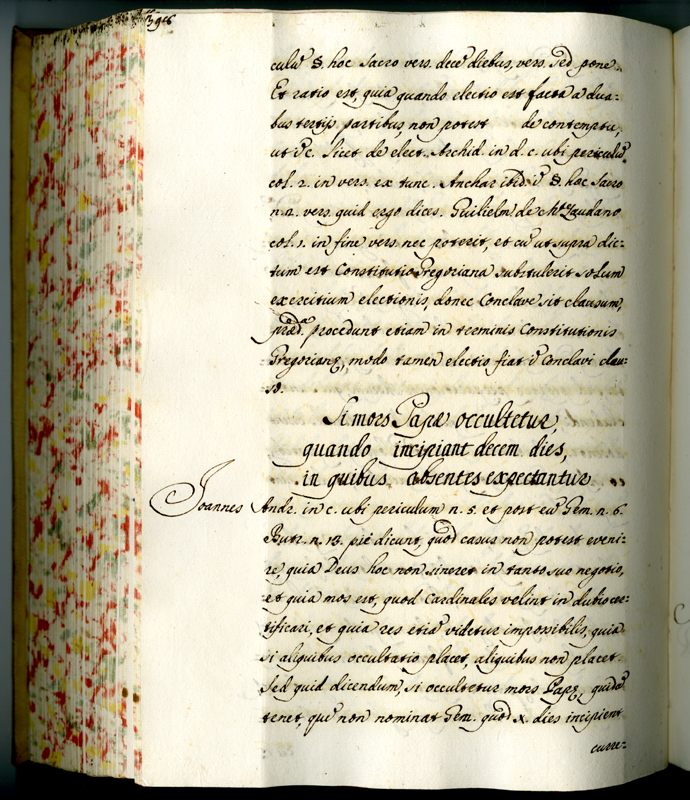 culũ §. hoc Sacro vers. decẽ diebus, vers. sed pone.
Et ratio est, quia quando electio est facta a dua:
bus tertijs partibus, non potest de contemptu,
ut ĩ c. licet de elect. Archid. in d. c. ubi periculũ
col. 2. in vers. ex tunc. Anchar ibid. ĩ §. hoc Sacro
n. 2. vers. quid ergo dices. Guilielm de Laudano
col. 1. in fine vers. nec poterit, et cũ ut supra dic:
tum est Constitutio Gregoriana substulerit solum
exercitium electionis, donec Conclave sit clausum,
præd.ᵃ procedunt etiam in terminis Constitutionis
Gregorianę, modo tamen electio fiat ĩ Conclavi clau:
so.
Si mors Papæ occultetur,
quando incipiant decem dies,
in quibus absentes expectantur
Joannes Andr. in c. ubi periculum n. 5. et post eũ Gem. n. 6.
Butr. n. 13. piè dicunt, quod casus non potest eveni:
re, quia Deus hoc non sineret in tanto suo negotio,
et quia mos est, quod Cardinales velint in dubio cer:
tificari, et quia res etiã videtur impossibilis, quia
si aliquibus occultatio placet, aliquibus non placet.
Sed quid dicendum, si occultetur mors Papę, quidã
tenet, quẽ non nominat Gem. quod x. dies incipient
curre: